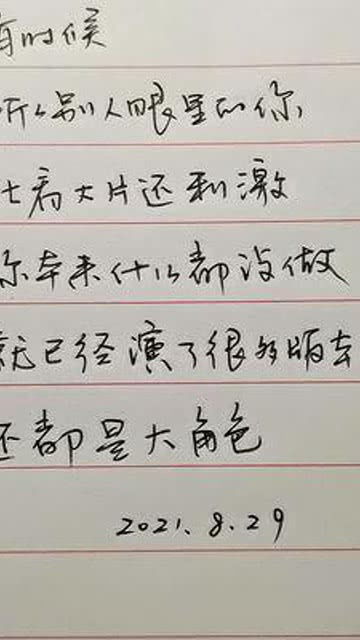 有时候
听听别人眼里的你
比看大片还刺激
你本来什么都没做
就已经演了很多版本
还都是大角色
2021.8.29